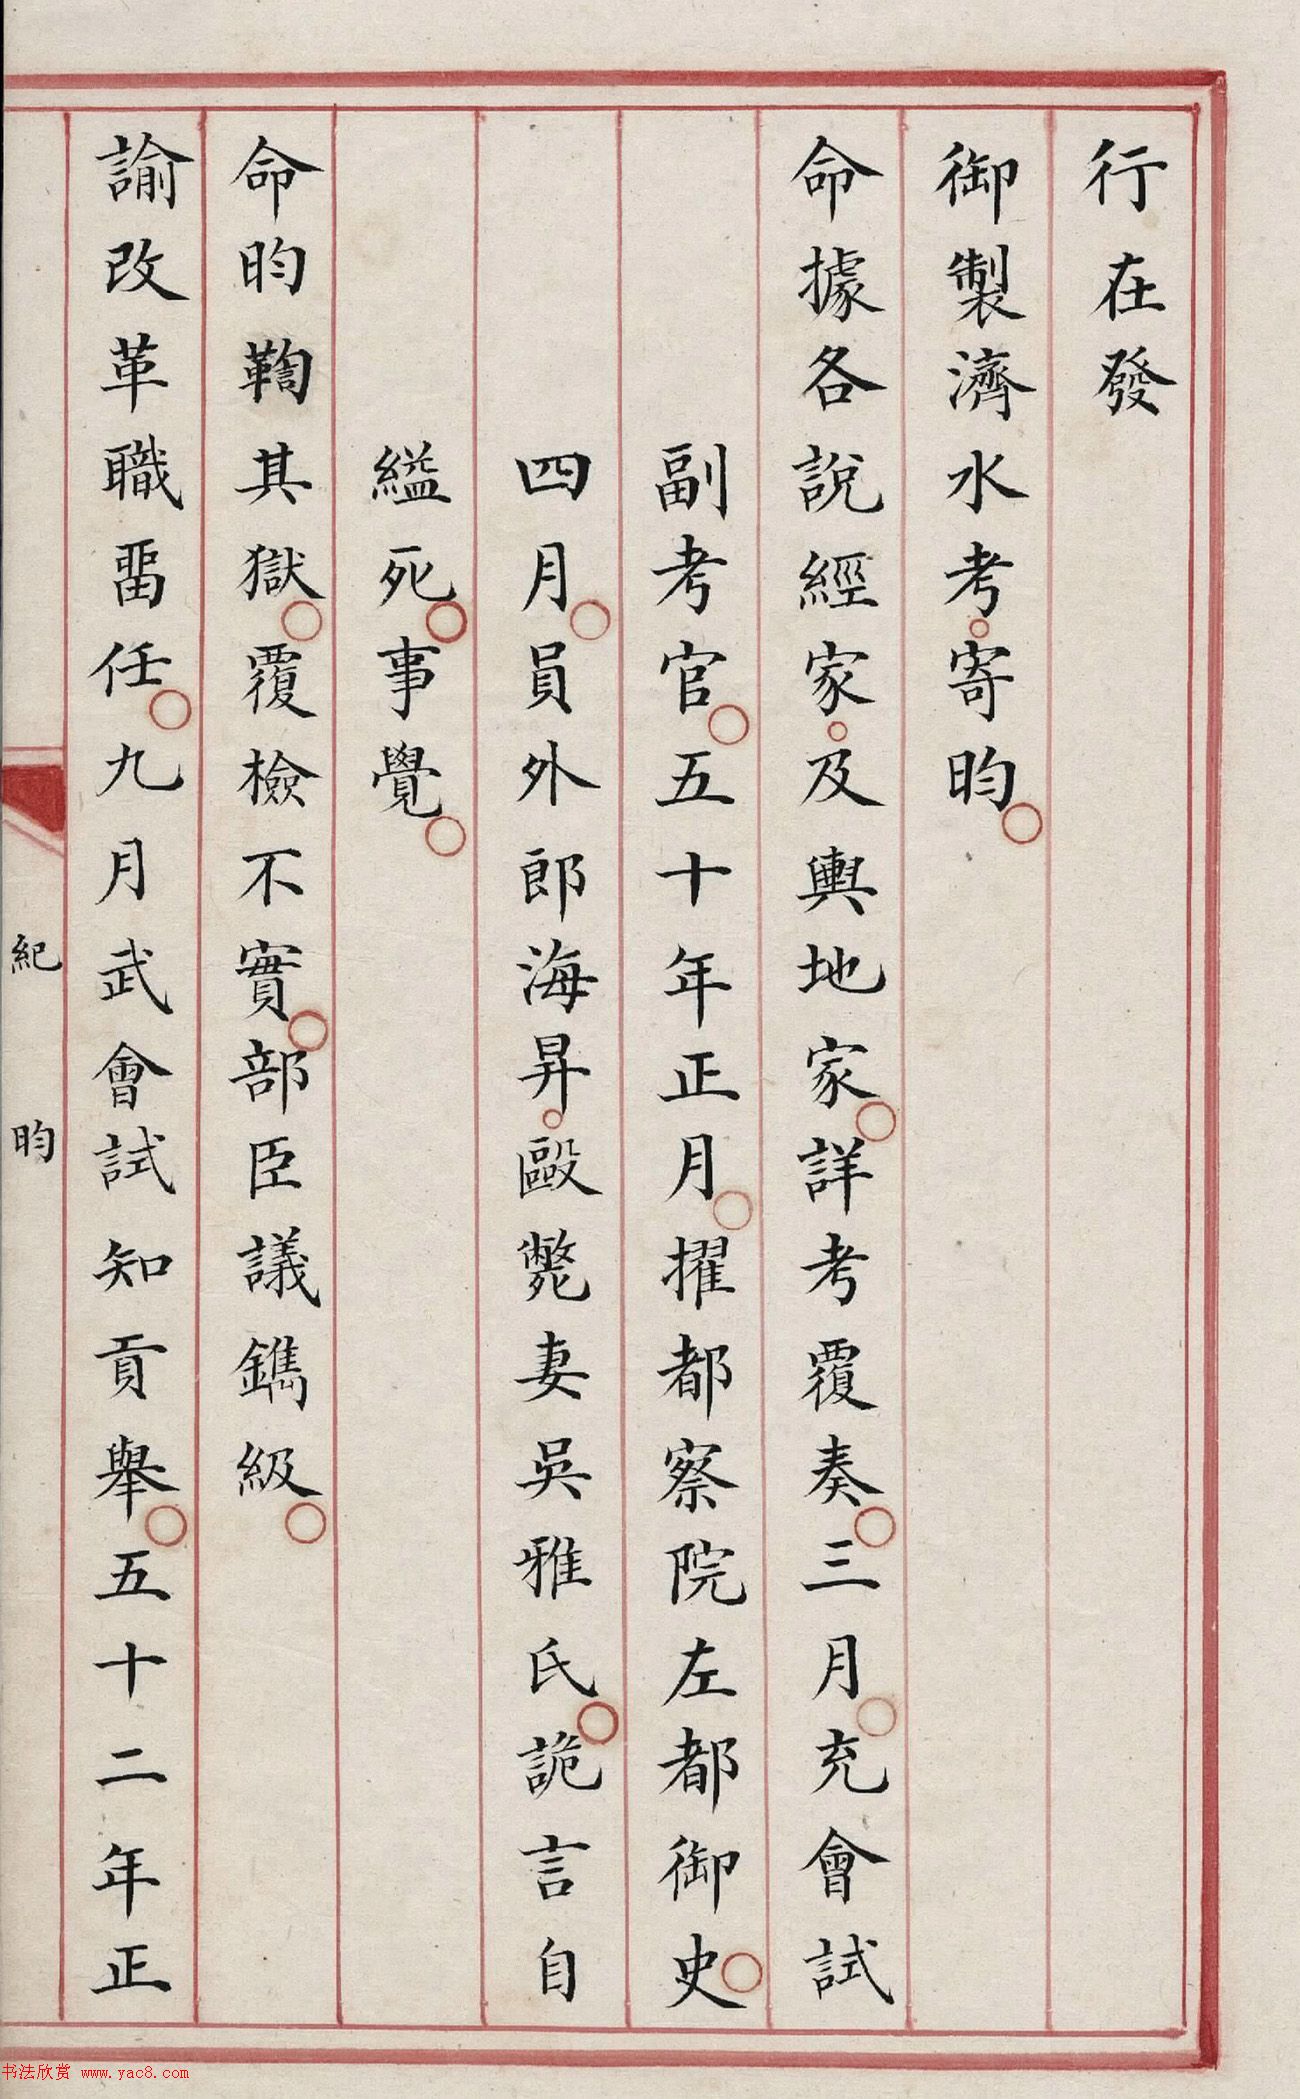 行在發
御製濟水考寄昀
命據各說經家及輿地家詳考覆奏三月充會試
副考官五十年正月擢都察院左都御史
四月員外郎海昇毆斃妻吳雅氏詭言自
縊死事覺
命昀鞫其獄覆檢不實部臣議鐫級
諭改革職畱任九月武會試知貢舉五十二年正
紀昀
书法欣赏 www.yac8.com